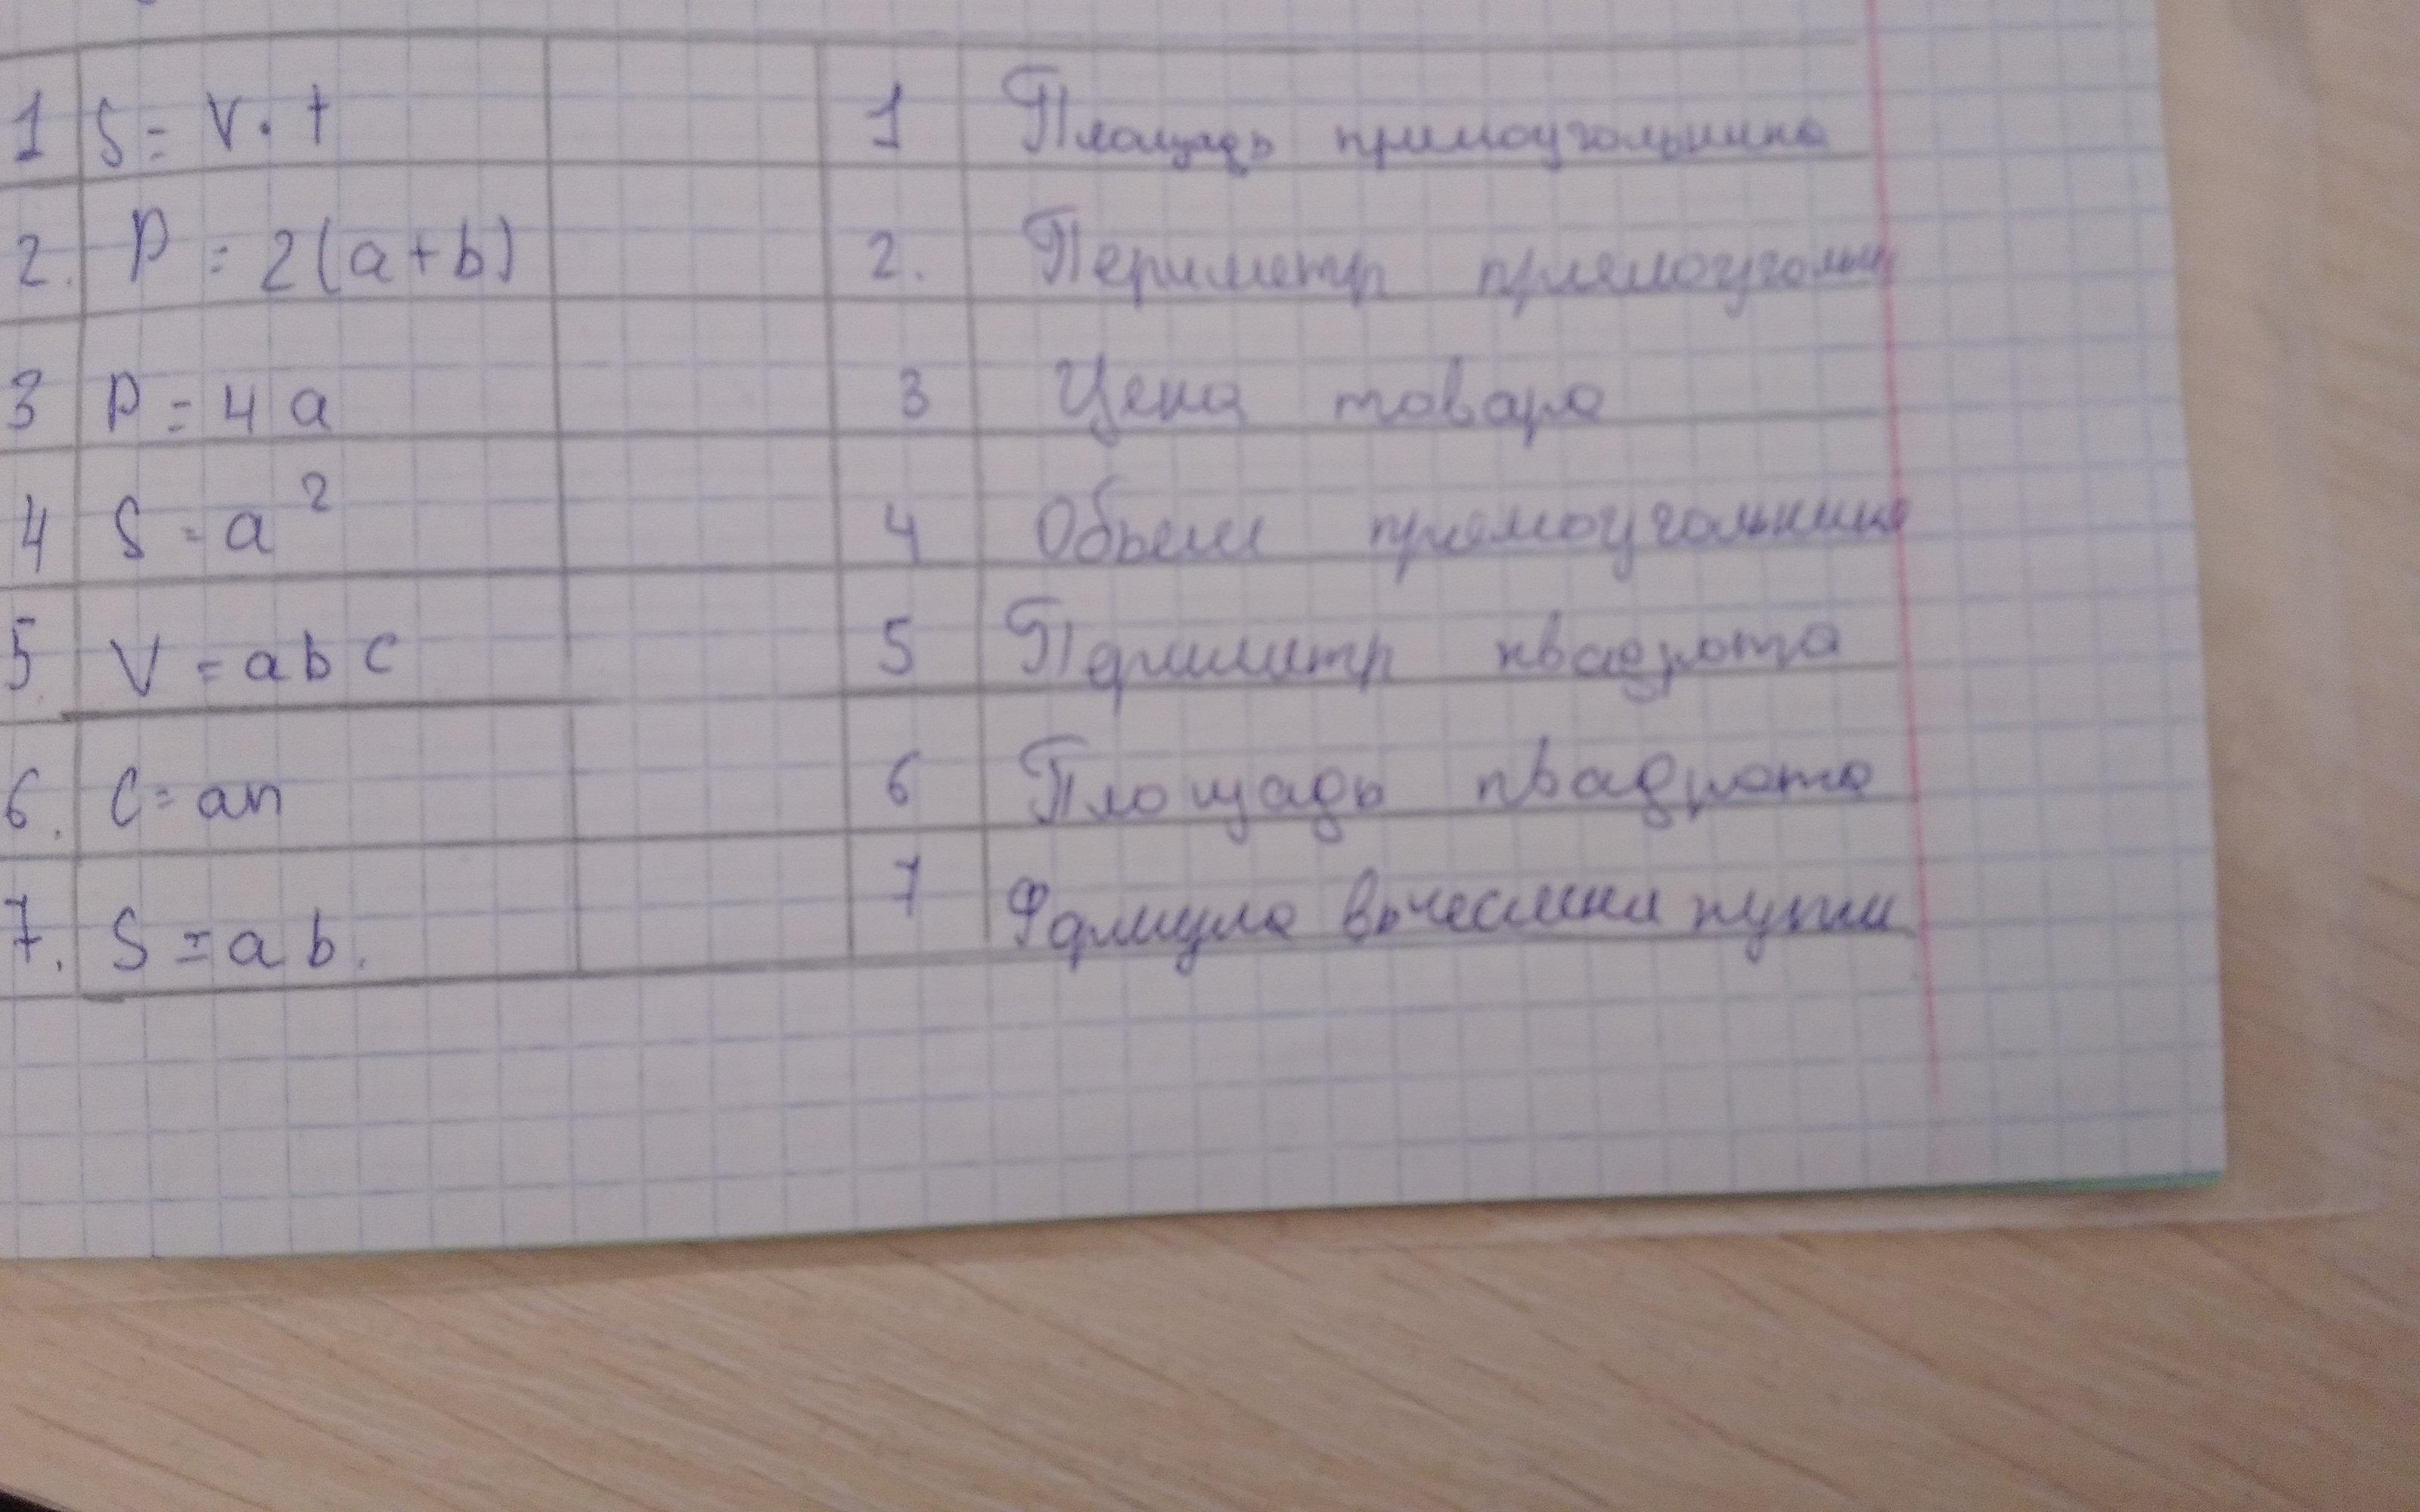 1 S = V · t 1 Площадь прямоугольника
2. P = 2(a+b) 2. Периметр прямоугольн
3 P = 4 a 3 Цена товара
4 S = a² 4 Объем прямоугольника
5 V = a b c 5 Периметр квадрата
6. C = an 6 Площадь квадрата
7. S = a b. 7 Формула вычесления пути